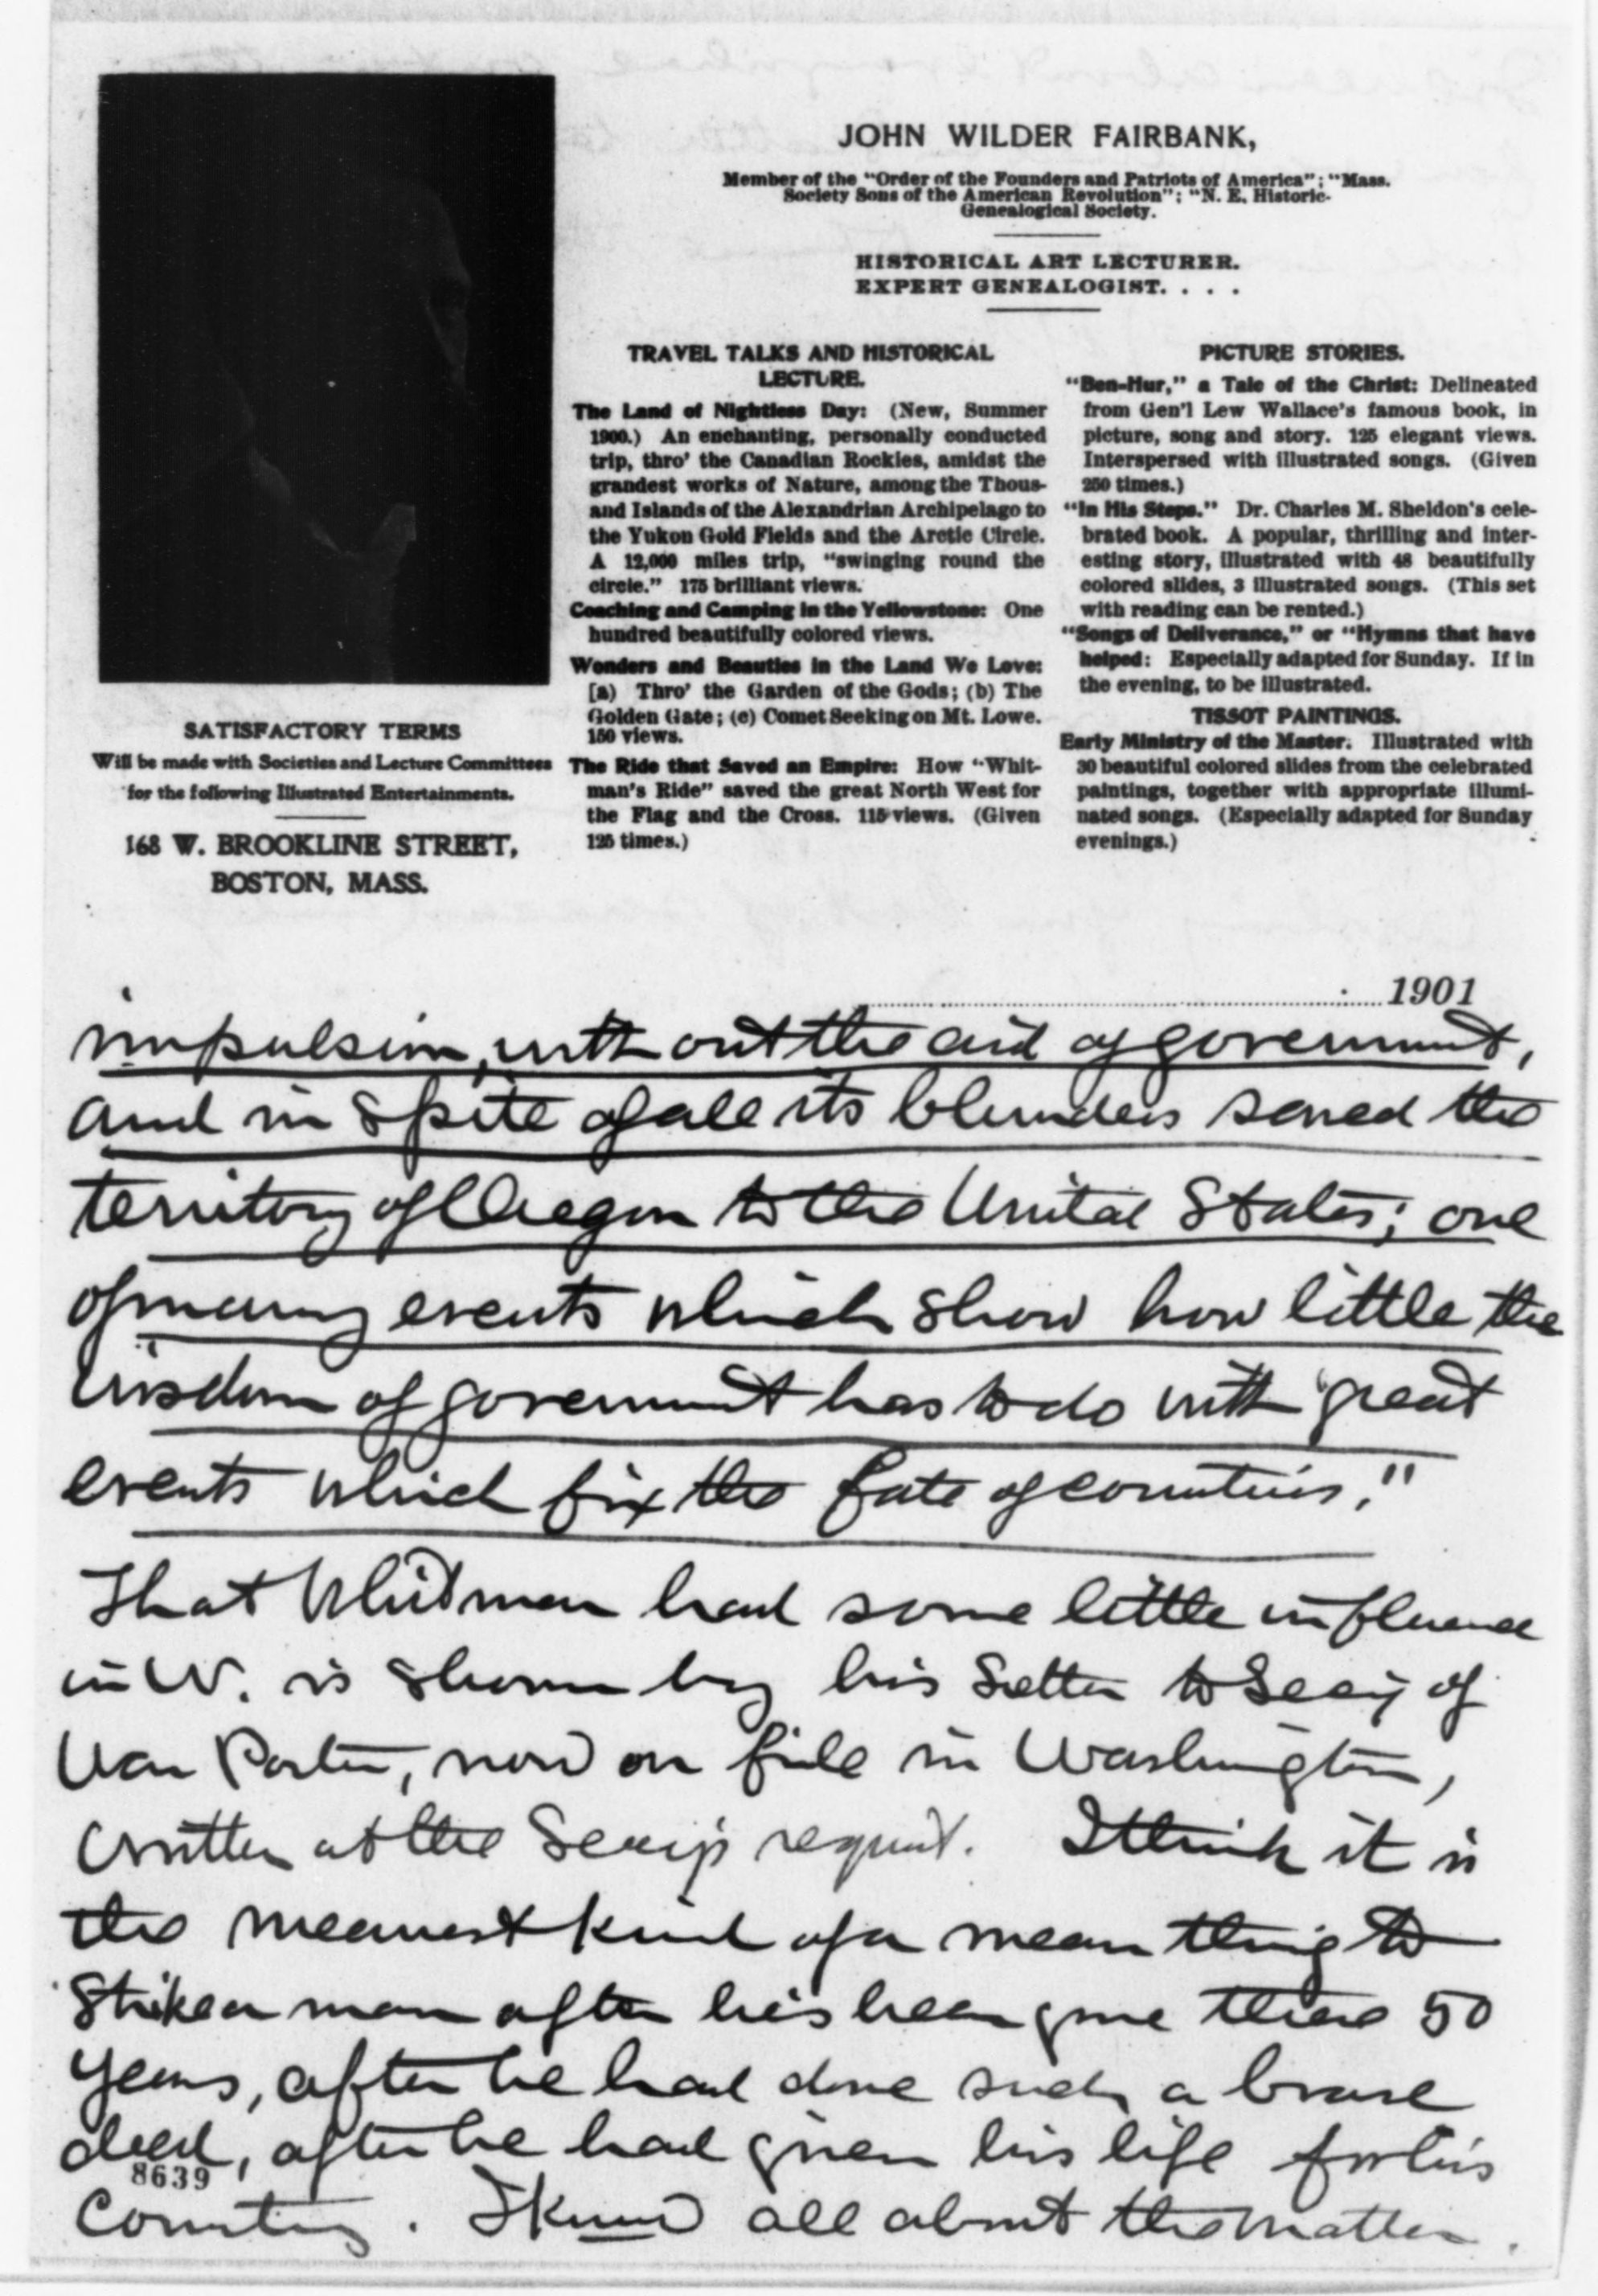 JOHN WILDER FAIRBANK,
Member of the "Order of the Founders and Patriots of America"; "Mass.
Society Sons of the American Revolution"; "N. E. Historic-
Genealogical Society.
HISTORICAL ART LECTURER.
EXPERT GENEALOGIST. . . .
SATISFACTORY TERMS
Will be made with Societies and Lecture Committees
for the following Illustrated Entertainments.
168 W. BROOKLINE STREET,
BOSTON, MASS.
TRAVEL TALKS AND HISTORICAL
LECTURE.
The Land of Nightless Day: (New, Summer
1900.) An enchanting, personally conducted
trip, thro' the Canadian Rockies, amidst the
grandest works of Nature, among the Thous-
and Islands of the Alexandrian Archipelago to
the Yukon Gold Fields and the Arctic Circle.
A 12,000 miles trip, "swinging round the
circle." 175 brilliant views.
Coaching and Camping in the Yellowstone: One
hundred beautifully colored views.
Wonders and Beauties in the Land We Love:
[a) Thro' the Garden of the Gods; (b) The
Golden Gate; (c) Comet Seeking on Mt. Lowe.
150 views.
The Ride that Saved an Empire: How "Whit-
man's Ride" saved the great North West for
the Flag and the Cross. 115 views. (Given
125 times.)
PICTURE STORIES.
"Ben-Hur," a Tale of the Christ: Delineated
from Gen'l Lew Wallace's famous book, in
picture, song and story. 125 elegant views.
Interspersed with illustrated songs. (Given
250 times.)
"In His Steps." Dr. Charles M. Sheldon's cele-
brated book. A popular, thrilling and inter-
esting story, illustrated with 48 beautifully
colored slides, 3 illustrated songs. (This set
with reading can be rented.)
"Songs of Deliverance," or "Hymns that have
helped: Especially adapted for Sunday. If in
the evening, to be illustrated.
TISSOT PAINTINGS.
Early Ministry of the Master. Illustrated with
30 beautiful colored slides from the celebrated
paintings, together with appropriate illumi-
nated songs. (Especially adapted for Sunday
evenings.)
1901
impulsion, with out the aid of government,
and in spite of all its blunders saved the
territory of Oregon to the United States; one
of many events which show how little the
wisdom of government has to do with great
events which fix the fate of countries."
That Whitman had some little influence
in W. is shown by his Letter to Secy of
War Porter, now on file in Washington,
written at the Secy's request. I think it is
the meanest kind of a mean thing to
strike a man after he's been gone these 50
years, after he had done such a brave
deed, after he had given his life for his
8639
Country. I know all about the matter.